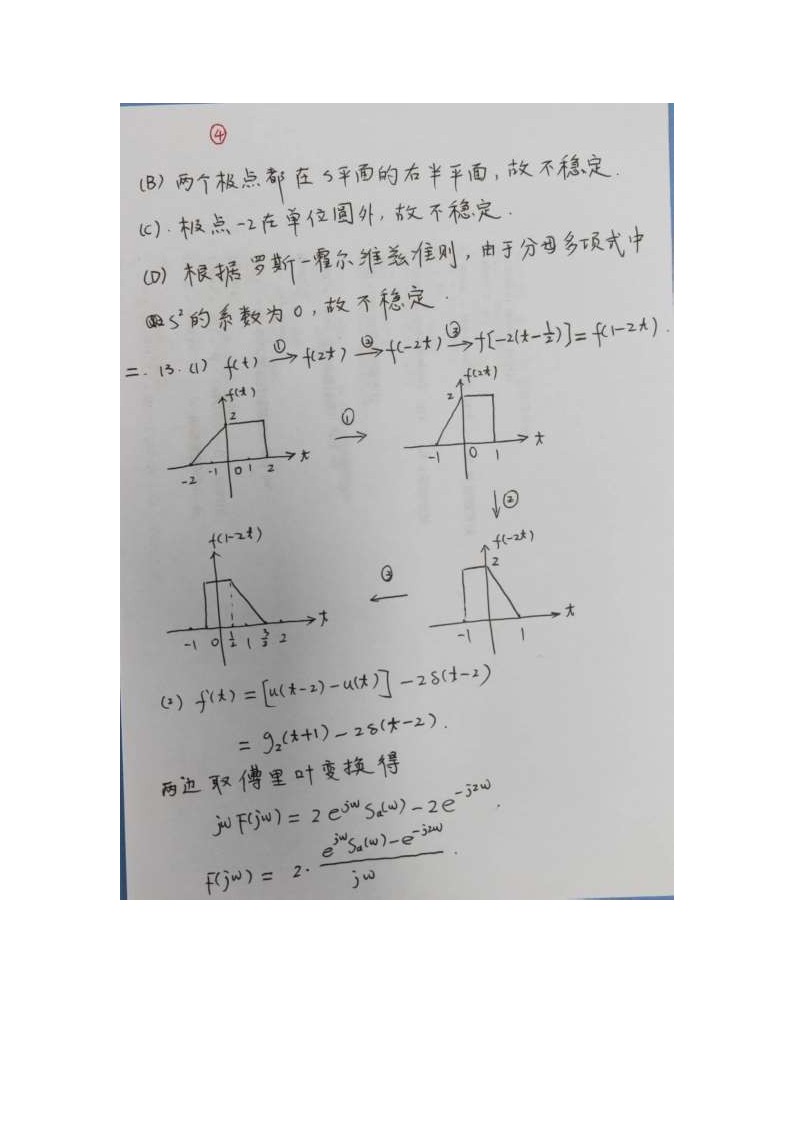 ④
(B) 两个极点都在 S平面的右半平面, 故不稳定.
(C). 极点-2在单位圆外, 故不稳定.
(D) 根据罗斯-霍尔维兹准则, 由于分母多项式中
S²的系数为0, 故不稳定.
二. 13. (1) f(t) ①→ f(2t) ②→ f(-2t) ③→ f[-2(t-1/2)] = f(1-2t).
f(t) 2 -2 -1 0 1 2 t
①
f(2t) 2 -1 0 1 t
②
f(1-2t) -1 0 1/2 1 3/2 2 t
③
f(-2t) 2 -1 1 t
(2) f'(t) = [u(t-2) - u(t)] - 2δ(t-2)
= g₂(t+1) - 2δ(t-2).
两边取傅里叶变换得
jw F(jw) = 2e^{jw} Sa(w) - 2e^{-j2w}.
F(jw) = 2· (e^{jw} Sa(w) - e^{-j2w}) / jw .